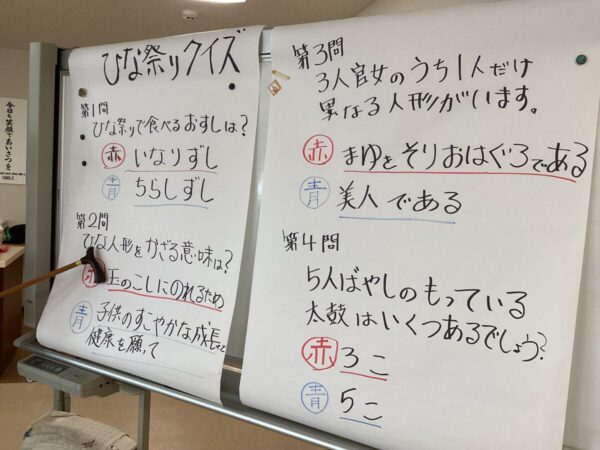 ひな祭りクイズ
第1問
ひな祭りで食べるおすしは?
赤 いなりずし
青 ちらしずし
第2問
ひな人形をかざる意味は?
赤 玉のこしにのれるため
青 子供のすこやかな成長と
健康を願って
第3問
3人官女のうち1人だけ
異なる人形がいます。
赤 まゆをそりおはぐろである
青 美人である
第4問
5人ばやしのもっている
太鼓はいくつあるでしょう?
赤 3こ
青 5こ
今日も笑顔であいさつを